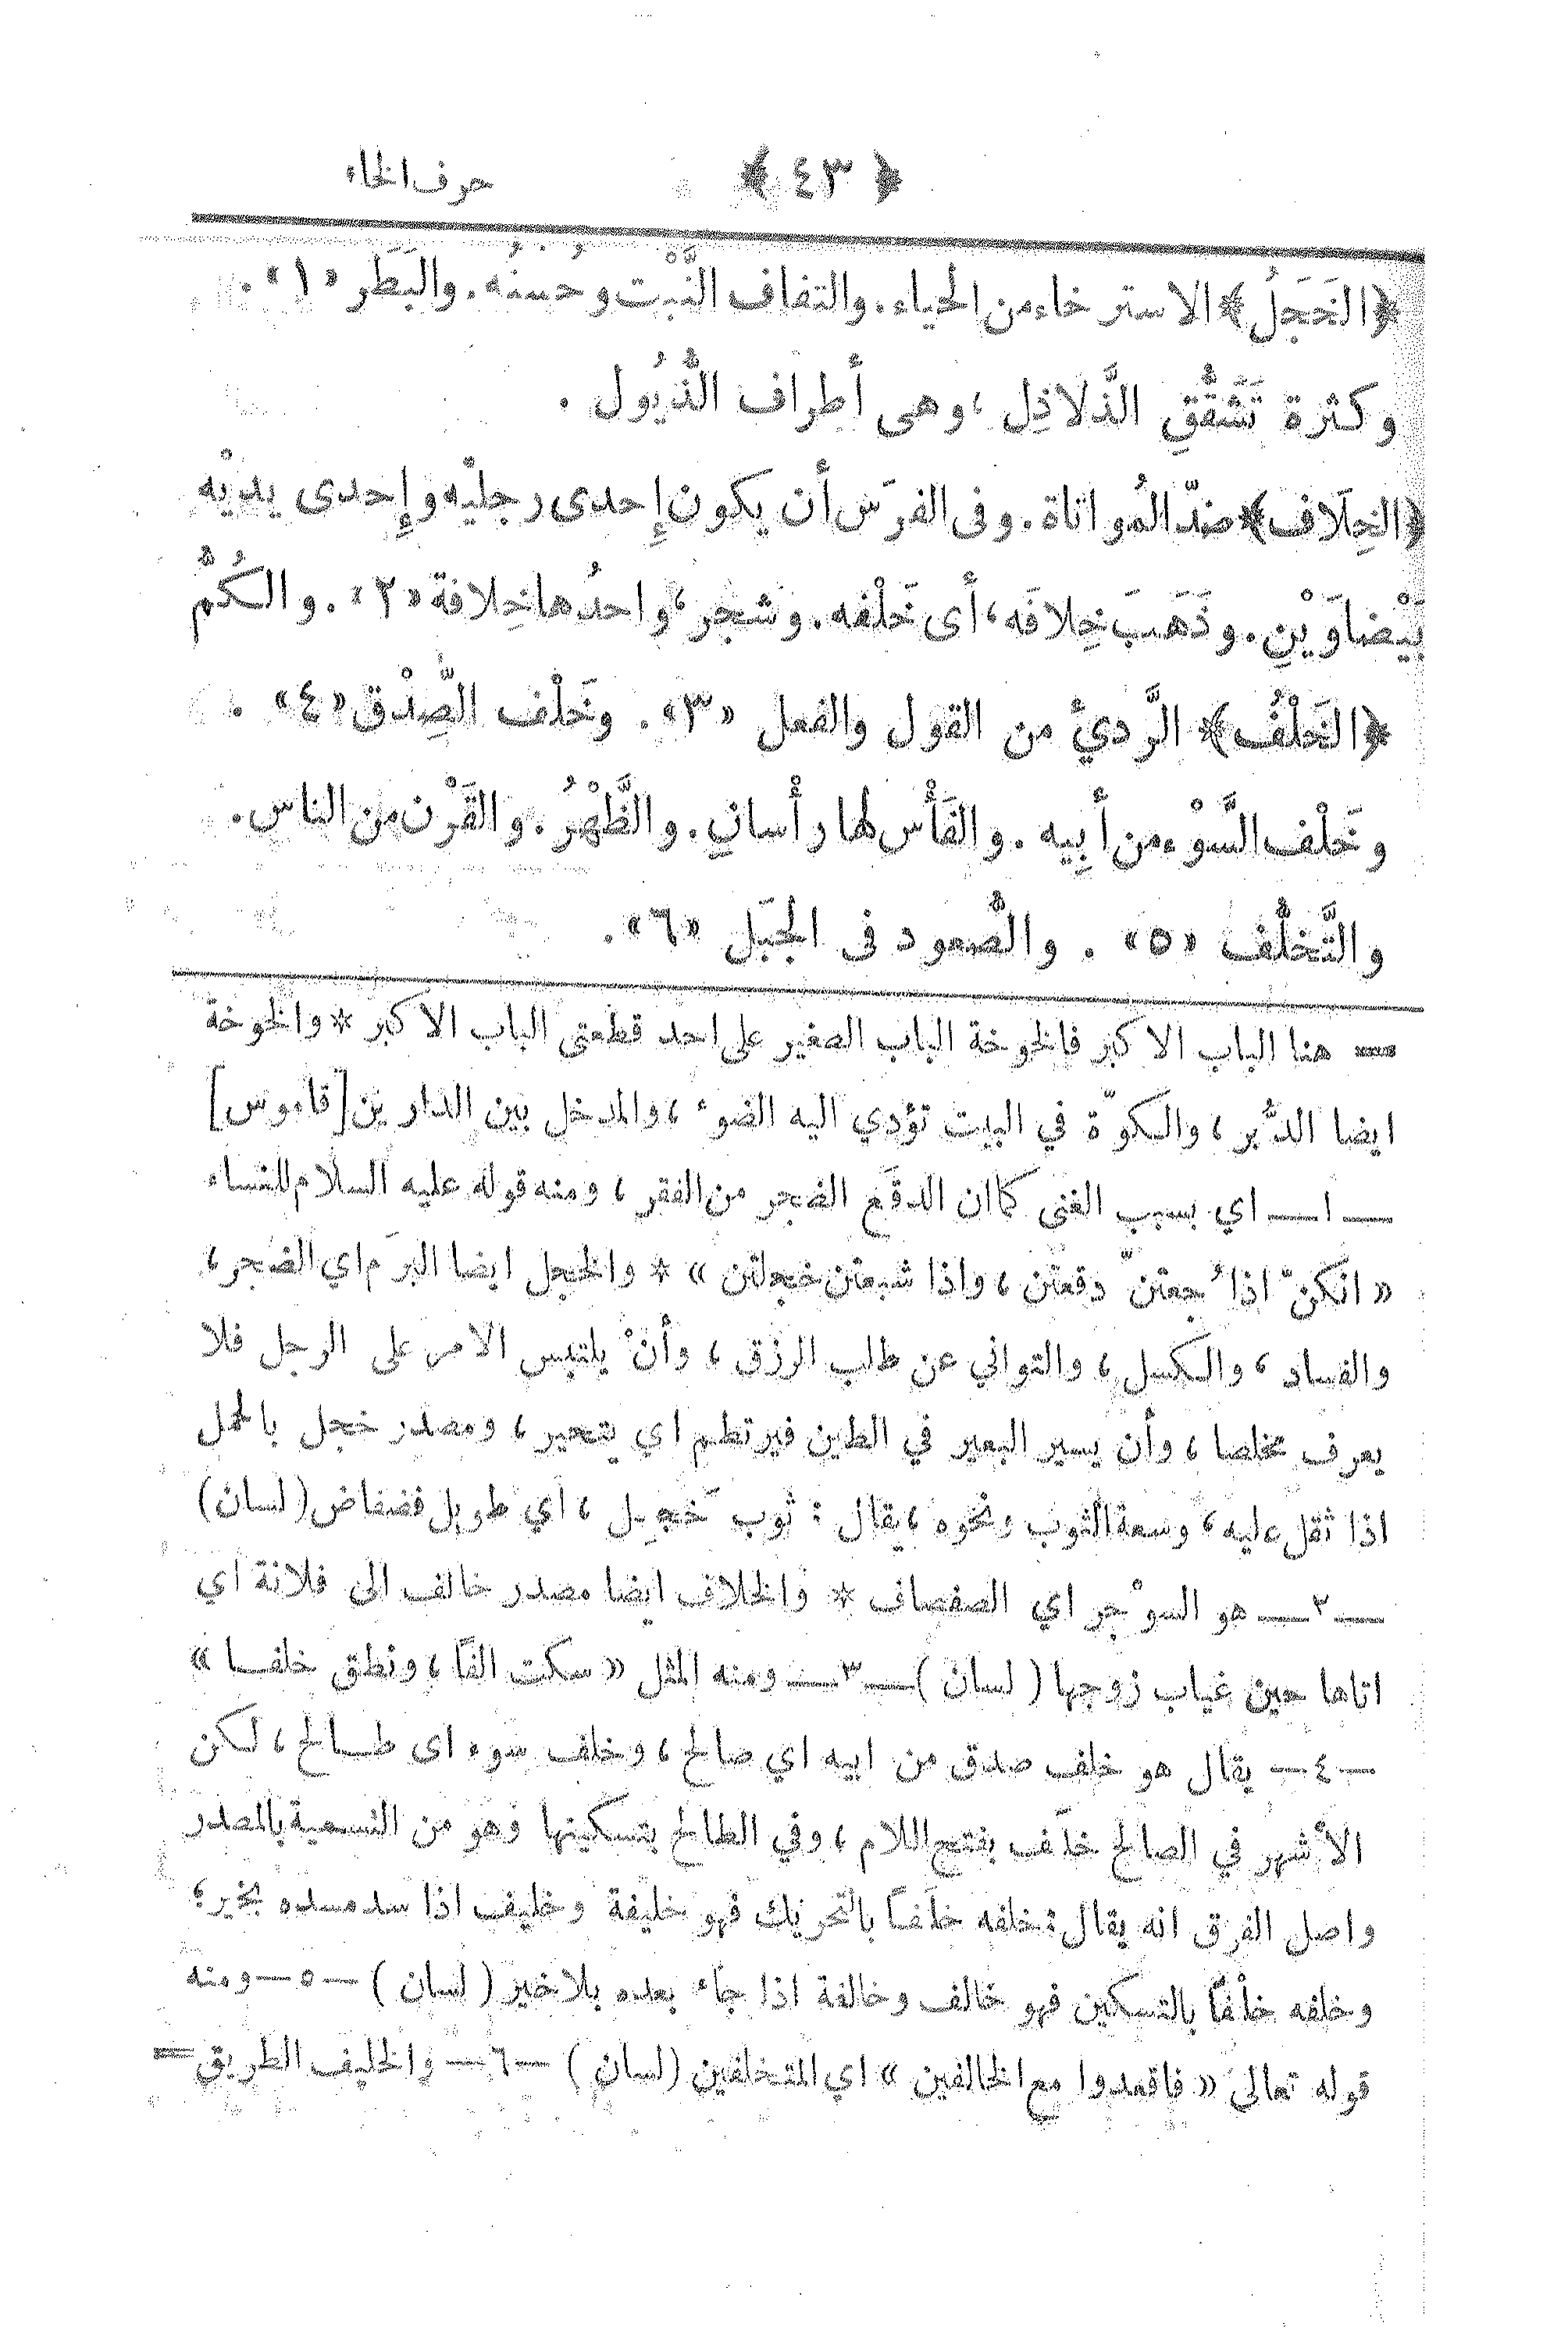 ﴿ ٤٣ ﴾ حرف الخاء
﴿الخَجَلُ﴾ الاسترخاء من الحياء. والتفاف النَّبْت وحُسنُه. والبَطَر «١».
وكثرة تَشَقُّقِ الذَّلاذِل، وهى أطراف الذُّيُول.
﴿الخِلَاف﴾ ضدّ المُواتاة. وفى الفرَس أن يكون إحدى رجليْه وإحدى يديْه
بَيْضاوَيْنِ. وذَهَبَ خِلافَه، أى خَلْفه. وشجر، واحدُها خِلافة «٢». والكُمُّ
﴿الخَلْفُ﴾ الرَّديُّ من القول والفعل «٣». وخَلْف الصِّدْق «٤».
وخَلْف السَّوْء من أبِيه. والفَأْس لها رأْسانِ. والظَّهْرُ. والقَرْن من الناس.
والتَّخلُّف «٥». والصُّعود فى الجبَل «٦».
= هنا الباب الاكبر فالخوخة الباب الصغير على احد قطعتي الباب الاكبر * والخوخة
ايضا الدُّبر، والكوّة في البيت تؤدي اليه الضوء، والمدخل بين الدارين [قاموس]
— ١ — اي بسبب الغنى كما ان الدقَع الضجر من الفقر، ومنه قوله عليه السلام للنساء
« انكنّ اذا جُعتنّ دقعتن، واذا شبعتن خجلتن » * والخجل ايضا البرَم اي الضجر،
والفساد، والكسل، والتواني عن طلب الرزق، وأنْ يلتبس الامر على الرجل فلا
يعرف مخلصا، وأن يسير البعير في الطين فيرتطم اي يتحير، ومصدر خجل بالحمل
اذا ثقل عليه، وسعة الثوب ونحوه، يقال: ثوب خَجِل، اي طويل فضفاض (لسان)
— ٢ — هو السوْجر اي الصفصاف * والخلاف ايضا مصدر خالف الى فلانة اي
اتاها حين غياب زوجها ( لسان ) — ٣ — ومنه المثل « سكت الفًا، ونطق خلفا »
— ٤ — يقال هو خلف صدق من ابيه اي صالح، وخلف سوء اى طالح، لكن
الأشهر في الصالح خلَف بفتح اللام، وفي الطالح بتسكينها وهو من التسمية بالمصدر
واصل الفرق انه يقال: خلفه خلَفاً بالتحريك فهو خليفة وخليف اذا سد مسده بخير؛
وخلفه خلْفاً بالتسكين فهو خالف وخالفة اذا جاء بعده بلا خير ( لسان ) — ٥ — ومنه
قوله تعالى « فاقعدوا مع الخالفين » اي المتخلفين (لسان) — ٦ — والخليف الطريق =